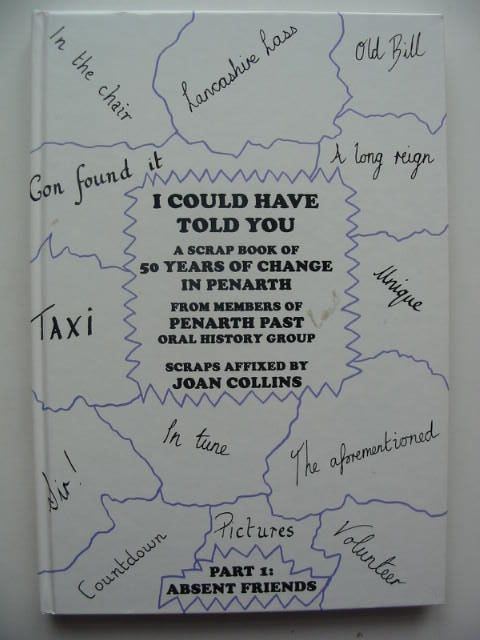 In the chair
Lancashire Lass
Old Bill
Con found it
A long reign
I COULD HAVE
TOLD YOU
A SCRAP BOOK OF
50 YEARS OF CHANGE
IN PENARTH
FROM MEMBERS OF
PENARTH PAST
ORAL HISTORY GROUP
SCRAPS AFFIXED BY
JOAN COLLINS
TAXI
Unique
In tune
The aforementioned
Sir!
Countdown
Pictures
Volunteer
PART 1:
ABSENT FRIENDS